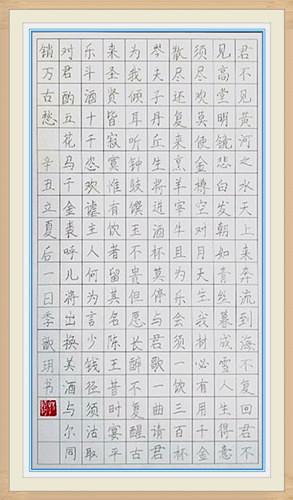 君不见黄河之水天上来奔流到海不复回君不
见高堂明镜悲白发朝如青丝暮成雪人生得意
须尽欢莫使金樽空对月天生我材必有用千金
散尽还复来烹羊宰牛且为乐会须一饮三百杯
岑夫子丹丘生将进酒杯莫停与君歌一曲请君
为我倾耳听钟鼓馔玉不贵但愿长醉不复醒古
来圣贤皆寂寞惟有饮者留其名陈王昔时宴平
乐斗酒十千恣欢谑主人何为言少钱径须沽取
对君酌五花马千金裘呼儿将出换美酒与尔同
销万古愁 辛丑立夏后一日季歆玥书